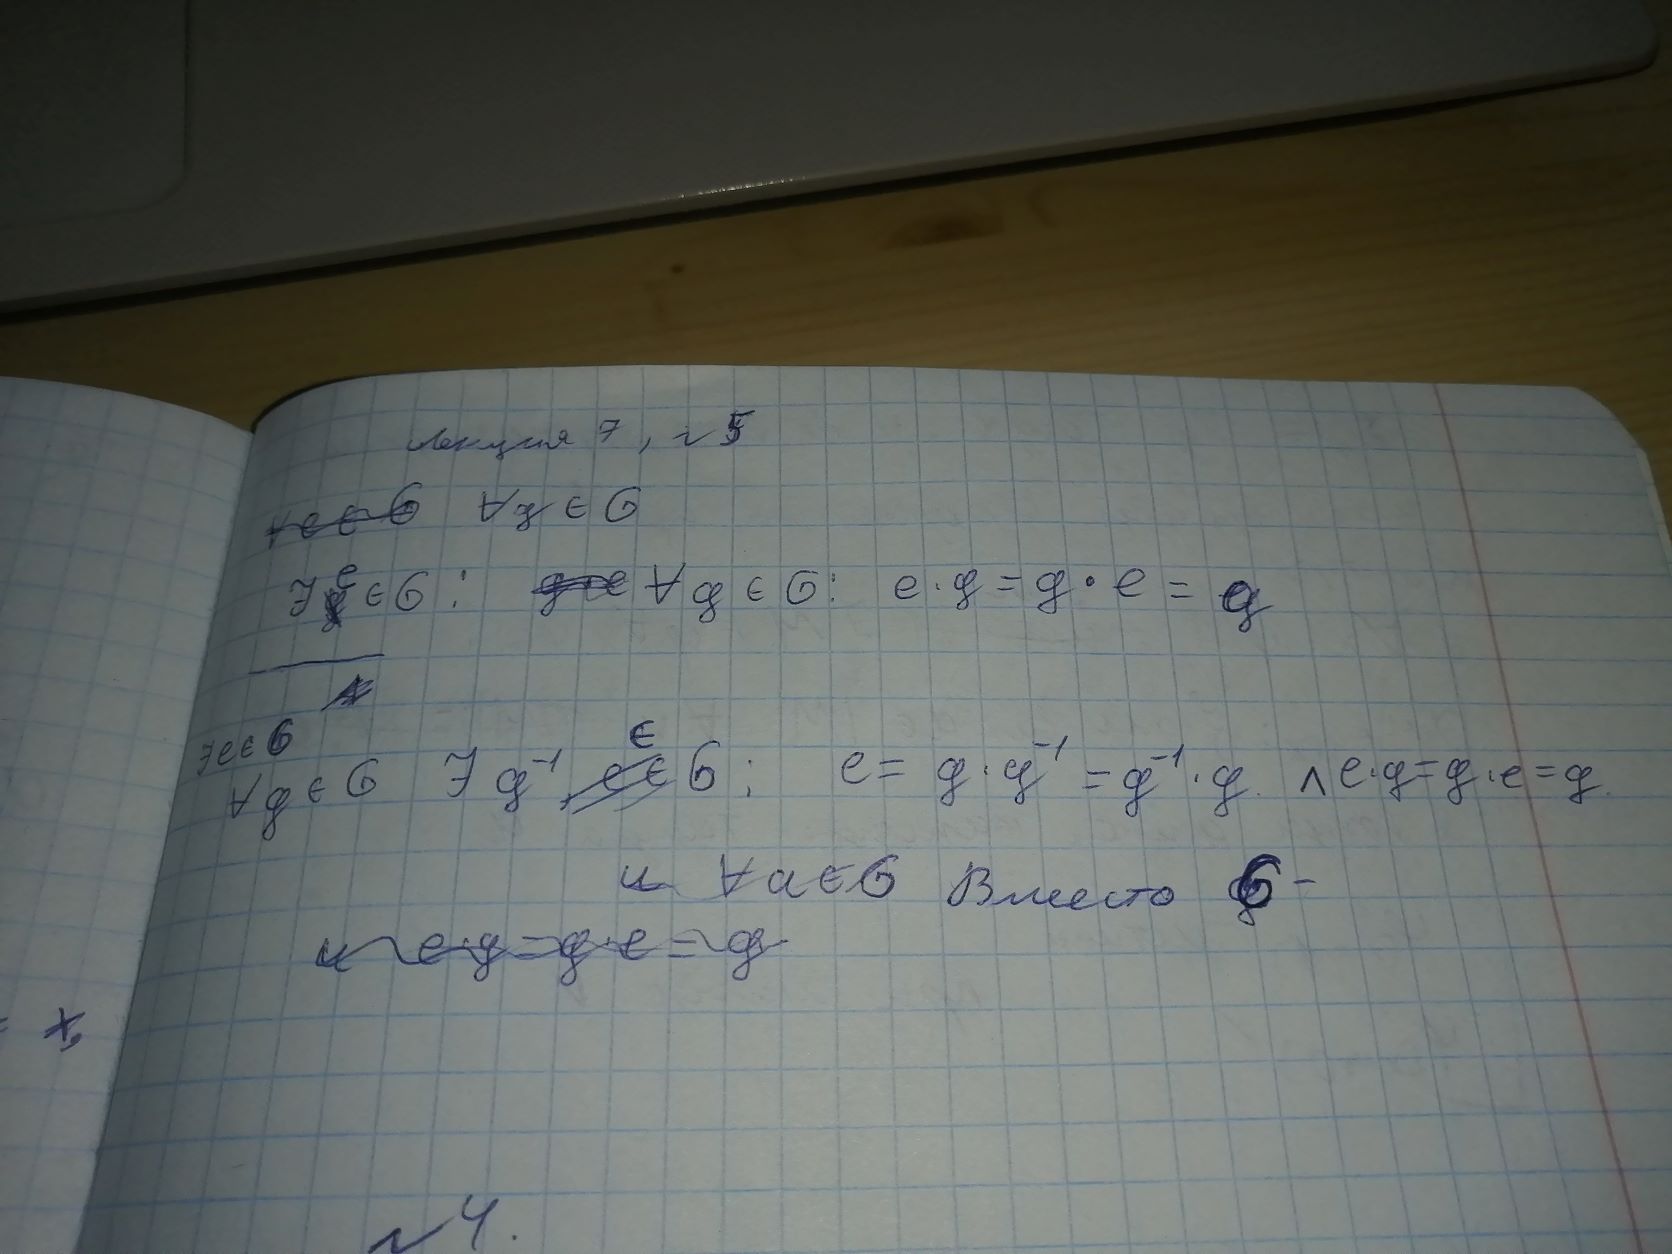 Лекция 7, №5
∀e∈G ∀g∈G
∃e∈G: g·e ∀g∈G: e·g=g·e=g
∃e∈G
∈
∀g∈G ∃g⁻¹ e∈G: e=g·g⁻¹=g⁻¹·g. ∧e·g=g·e=g.
и ∀a∈G Вместо G-
и e·g=g·e=g
= x,
№4.